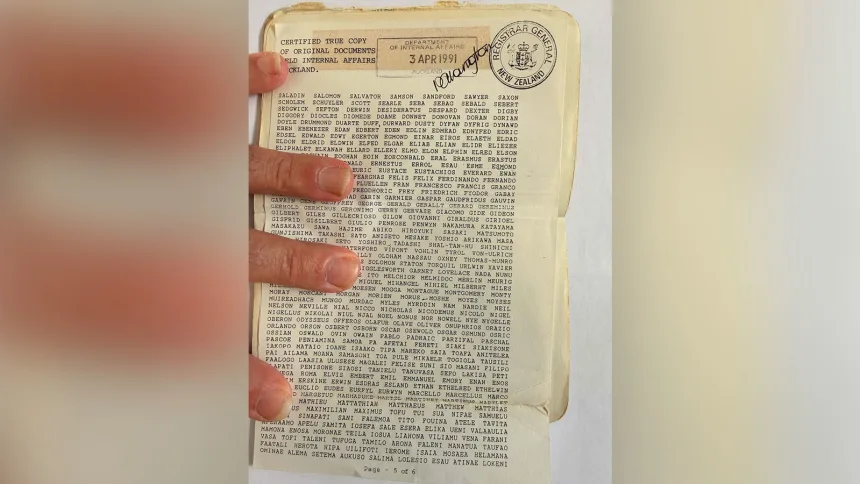 CERTIFIED TRUE COPY
OF ORIGINAL DOCUMENTS
HELD INTERNAL AFFAIRS
AUCKLAND.
DEPARTMENT
OF INTERNAL AFFAIRS
3 APR 1991
AUCKLAND
REGISTRAR GENERAL
NEW ZEALAND
SALADIN SALOMON SALVATOR SAMSON SANDFORD SAWYER SAXON
SCHOLEM SCHUYLER SCOTT SEARLE SEBA SEBAG SEBALD SEBERT
SEDGWICK SEFTON DERWIN DESIDERATUS DESPARD DEXTER DIGBY
DIGGORY DIOCLES DIOMEDE DOANE DONNET DONOVAN DORAN DORIAN
DOYLE DRUMMOND DUARTE DUFF DURWARD DUSTY DYFAN DYFRIG DYNAWD
EBEN EBENEZER EDAN EDBERT EDEN EDLIN EDMEAD EDNYFED EDRIC
EDSEL EDWALD EDWY EGERTON EGMOND EINAR EIROS ELAETH ELDAD
ELDON ELDRID ELDWIN ELFED ELGAR ELIAB ELIAN ELIDR ELIEZER
ELIPHALET ELKANAH ELLARD ELLERY ELMO ELON ELPHIN ELRED ELSON
EOGHAN EOIN EORCONBALD ERAL ERASMUS ERASTUS
ERNESTUS ERROL ESAU ESME EGMOND
EURIC EUSTACE EUSTACHIOS EVERARD EWAN
FEARGHAS FELIS FELIX FERDINANDO FERNANDO
FLUELLEN FRAN FRANCESCO FRANCIS GRANCO
FREODHORIC FREY FRIEDRICH FYODOR GABAY
GARIN GARNIER GASPAR GAUDFRIDUS GAUVIN
GAWAIN GEOFFREY GEORGE GERALD GERALLY GERARD
GERHOLD GERMINUS GERONIMO GERRY GERVASE GIACOMO GIDE GIDEON
GILBERT GILES GILLECRIOSD GILOW GIOVANNI GIRALDUS
GISFRID GISILBERT GIULIO PENROSE PENWYN NAKAMUNA KATAYAMA
MASAKAZU SAWA HAJIME ABIKO HIROYUKI SASAKI MATSUMOTO
GUNJISHIMA TAKASHI SATO ANISETO MESAKE YOSHIO ARIKAWA MASA
HIROSAKI SETO YOSHIRO TADASHI SHAL-TAN-HU SHINICHI
WATERFORD VIPONT VOHLIN TYROL VON-ULRICH
OLDHAM NASSAU OXNEY THOMAS-MUNRO
SOLOMON STATON TORQUIL URLWIN XAVIER
GARNET LOVELACE NADA NUNU
ITO MELCHIOR HELMIDOC MERLIN MEURIG
MIGUEL MIHANGEL MIHIEL MILSERHT MILES
MOESEN MOGGA MONTAGUE MONTGOMERY MONTY
MORAY MORCANT MORGAN MORIEN MORUS MOSHE MOYES MOZSES
MUIREADHACH MUNGO MURDAC MYLES MYRDDIN NAM BARDIE NEIL
NELSON NEVILLE NIAL NICCO NICHOLAS NICODEMUS NICOLO NIGEL
NIGELLUS NIKOLAI NIUL NJAL NOEL NONUS NOR NOWELL NYE NYGELLE
OBERON ODYSSEUS OFFEROS OLAFUR OLAVE OLIVER ONUPHRIOS ORAZIO
ORLANDO ORSON OSBERT OSBORN OSCAR OSEWOLD OSGAR OSMUND OSRIC
OSSIAN OSWALD OVIN OWAIN PABLO PADHAIC PARZIFAL PASCHAL
PASCOE PENIAMINA SAMOA FA AFETAI FERETI SIAKI SIAKISONE
IAKOPO MATAIO IOANE ISAAKO TIPA MAREKO SAIA TOAFA ANITELEA
PAI AILAMA MOANA SAMASONI TOA PULE MIKAELE TOGIOLA TAUSILI
FAALOGO LAASIA ULUSESE MAGALEI FELISE SUNI SIO MASANI FILIPO
PENISONE SIAOSI TANIELU TANUVASA SEFO LAKISA PETI
ROMA ELVIS EMBERT EMIL EMMANUEL EMORY ENAN ENOS
ERSKINE ERWIN ESDRAS ESLAND ETHAN ETHELRED ETHELWIN
EUCLID EUDES EURFYL EURWYN MARCELLO MARCELLUS MARCO
MATHIEU MATTATHIAN MATTHAEUS MATTHEW MATTHIAS
MAXIMILIAN MAXIMUS TOFU TUI SUA NIFAE SAMUELU
SINAPATI SANI FALEMOA TITO FOUINA ATELE TAVITA
APELU SAMITA IOSEFA SALE ESKRA ELIKA UENI VALAAULIA
MAMONA ENOSA MORONAE TEILA IOSUA LIAHONA VILIAMU VENA FARANI
VASA TOPI TALENI TUFUGA TAMILO ARONA FALENI MANATUA TAUFAO
FAATALI HEROTA HIPA UILIFOTI IEROME ISAIA MOSAEA HELAMANA
OMINAE ALEMA SETEMA AUKUSO SALIMA LOLESIO ESAU ATINAE LOKENI
Page - 5 of 6